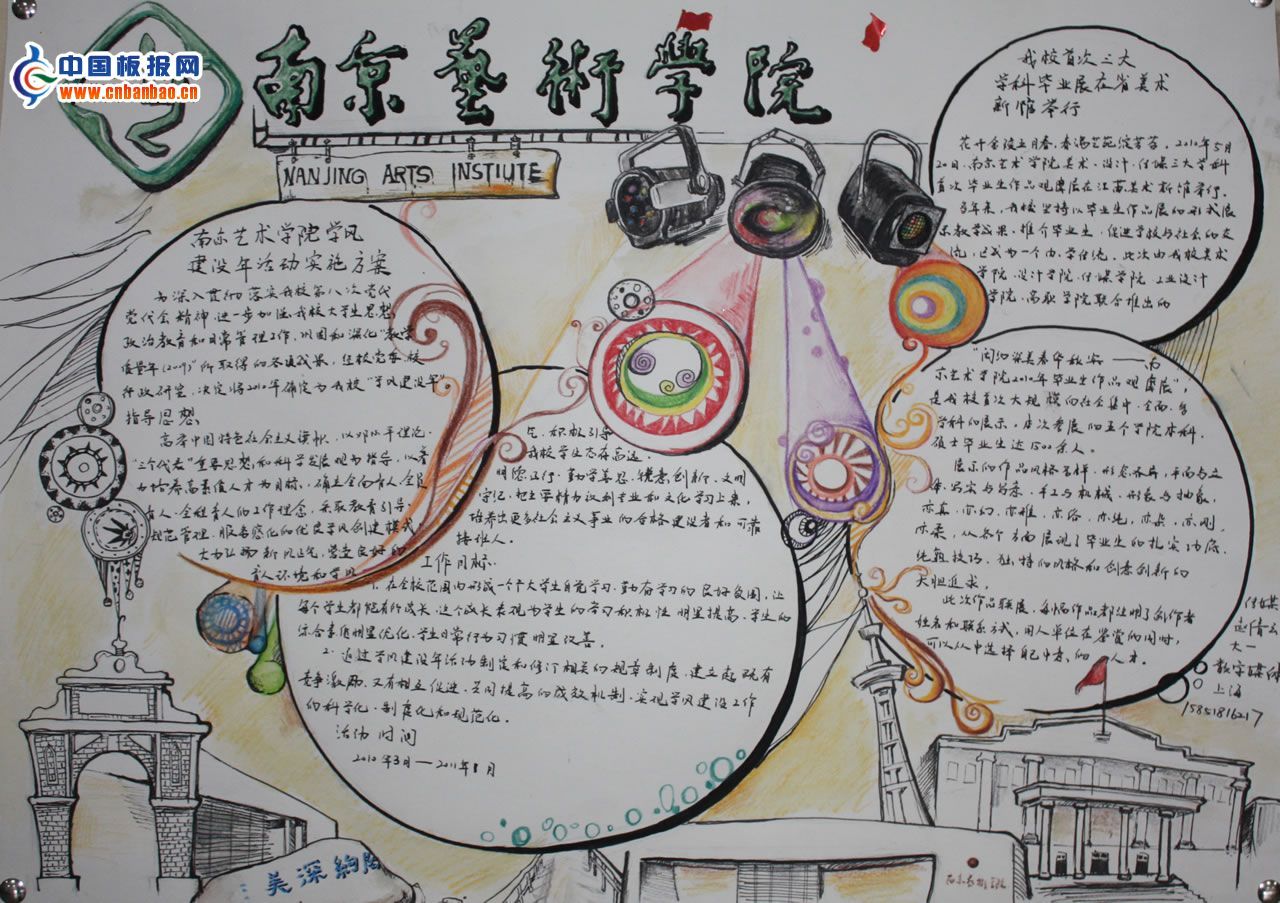 中国板报网
www.cnbanbao.cn
南京藝術學院
NANJING ARTS INSTIUTE
南京艺术学院学风
建设年活动实施方案
为深入贯彻落实我校第八次党代
党代会精神,进一步加强我校大学生思想
政治教育和日常管理工作,巩固和深化"教学
质量年(2009)"所取得的各项成果,经校党委、校
行政研究,决定将2010年确定为我校"学风建设年"
指导思想
高举中国特色社会主义旗帜,以邓小平理论、
"三个代表"重要思想和科学发展观为指导,以
为培养高素质人才为目标,确立全面育人、全员
育人、全程育人的工作理念,采取教育引导、
规范管理、服务感化的优良学风创建模式
大力弘扬新风正气,营造良好的
育人环境和学风
气,积极引导
我校学生志存高远、
明德正行、勤学善思、锐意创新、文明
守纪,把主要精力放到专业和文化学习上来,
培养出更多社会主义事业的合格建设者和可靠
接班人。
工作目标
1.在全校范围内形成一个广大学生自觉学习、勤奋学习的良好氛围,让
每个学生都能有所成长,这个成长表现为学生的学习积极性明显提高,学生的
综合素质明显优化,学生日常行为习惯明显改善。
2.通过学风建设年活动制定和修订相关的规章制度,建立起既有
竞争激励,又有相互促进、共同提高的成效机制,实现学风建设工作
的科学化、制度化和规范化。
活动时间
2010年3月—2011年1月
我校首次三大
学科毕业展在省美术
新馆举行
花开金陵五月春,春满艺苑绽芳芬。2010年5月
20日,南京艺术学院美术、设计、传媒三大学科
首次毕业生作品观摩展在江苏美术新馆举行。
多年来,我校坚持以毕业生作品展的形式展
示教学成果、推介毕业生、促进学校与社会的交
流,已成为一个办学传统。此次由我校美术
学院、设计学院、传媒学院、工业设计
学院、高职学院联合推出的
"闳约深美春华秋实——南
京艺术学院2010年毕业生作品观摩展",
是我校首次大规模向社会集中、全面、多
学科的展示,本次参展的五个学院本科、
硕士毕业生达1500余人。
展示的作品风格多样,形态各异,平面与立
体、写实与写意、手工与机械、形象与抽象,
亦真、亦幻、亦雅、亦俗、亦纯、亦杂、亦刚、
亦柔,从各个方面展现了毕业生的扎实功底、
纯熟技巧、独特的风格和创意创新的
大胆追求。
此次作品联展,每幅作品都注明了创作者
姓名和联系方式,用人单位在鉴赏的同时,
可以从中选择自己中意的人才。
传媒
大一
数字媒体
上海
15851816217
美深約閎
南京艺术学院